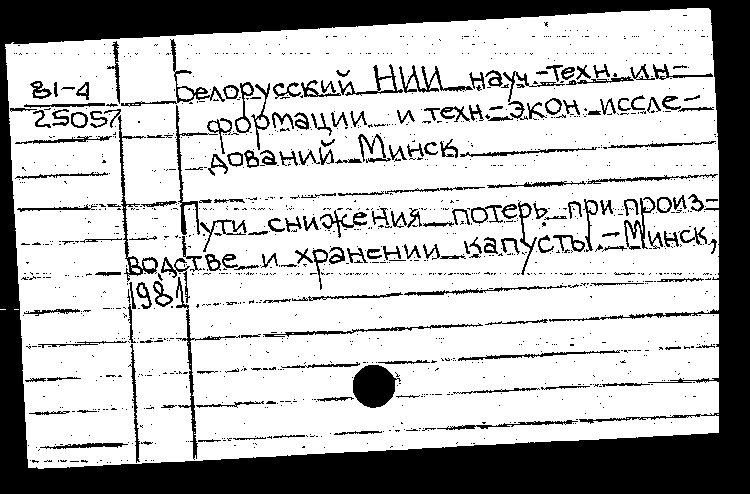 81-4
25057
Белорусский НИИ науч.-техн. ин-
формации и техн.-экон. иссле-
дований. Минск.
Пути снижения потерь при произ-
водстве и хранении капусты.-Минск,
1981.